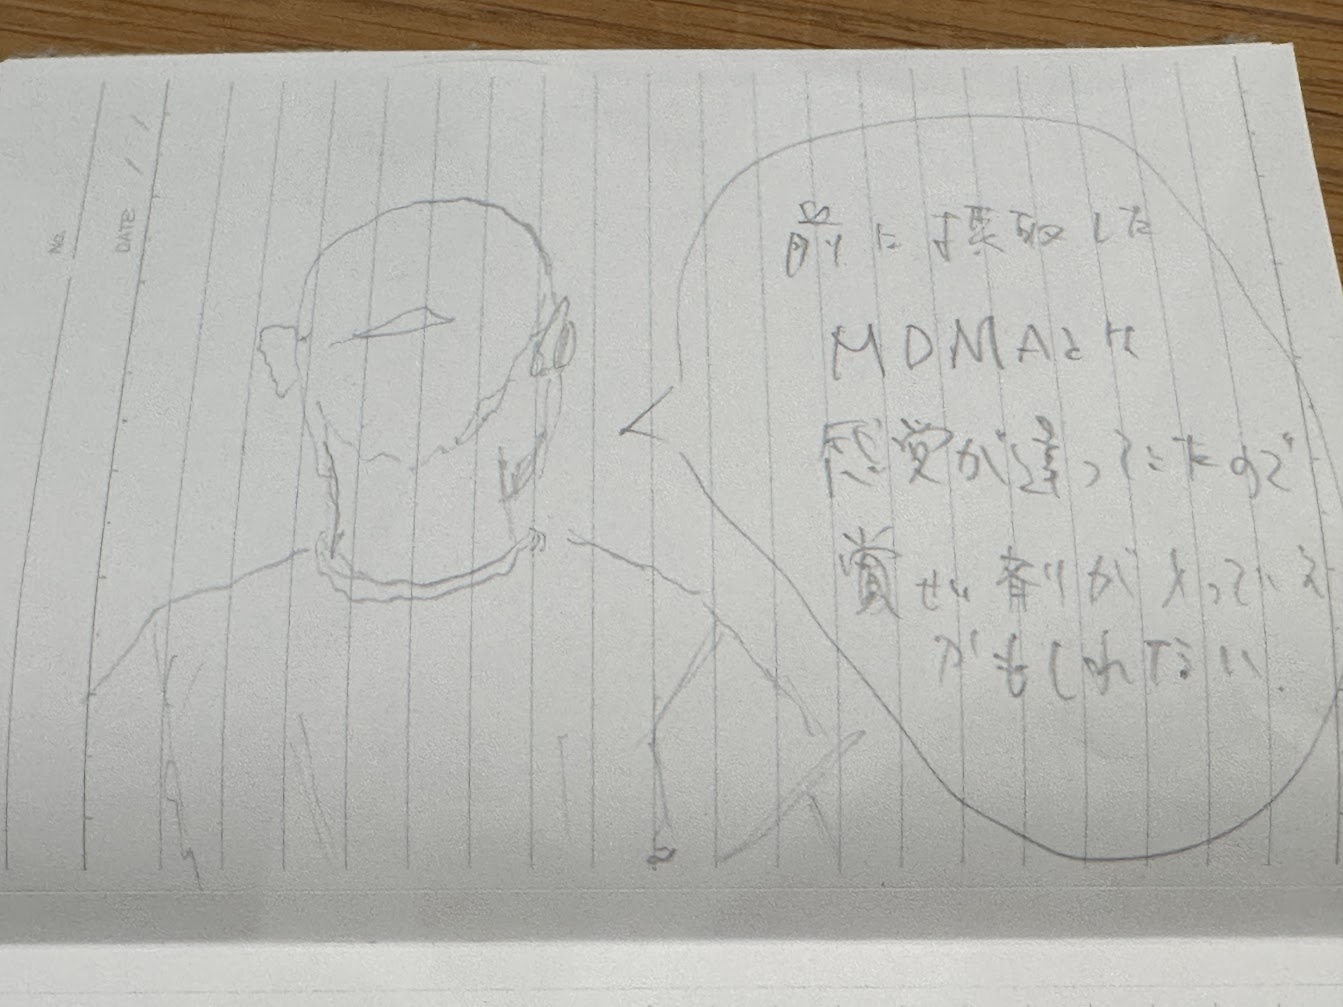 No.
DATE / /
前に摂取した
MDMAとは
感覚が違っていたので
覚せい剤が入っている
かもしれない.